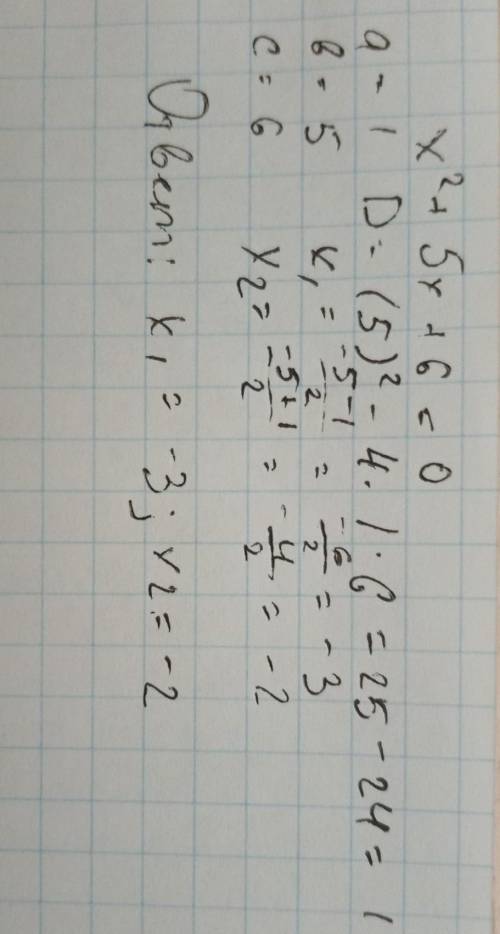 x² + 5x + 6 = 0
a = 1 D = (5)² - 4 · 1 · 6 = 25 - 24 = 1
b = 5 x₁ = -5-1/2 = -6/2 = -3
c = 6 x₂ = -5+1/2 = -4/2 = -2
Ответ: x₁ = -3; x₂ = -2